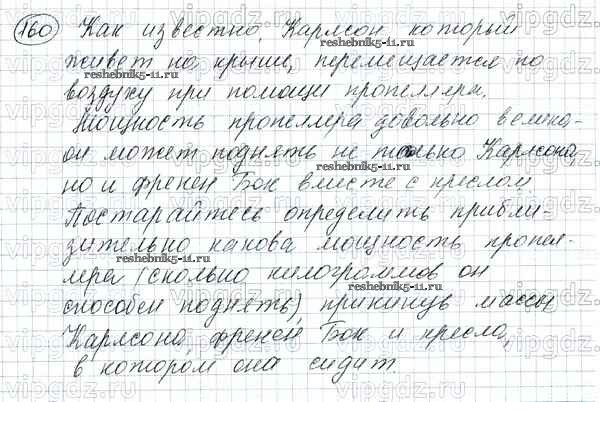 160 Как известно, Карлсон, который
живет на крыше, перемещается по
воздуху при помощи пропеллера.
Мощность пропеллера довольно велика -
он может поднять не только Карлсона,
но и фрекен Бок вместе с креслом
Постарайтесь определить прибли-
зительно какова мощность пропел-
лера (сколько килограммов он
способен поднять), прикинув массы
Карлсона, фрекен Бок и кресла,
в котором она сидит.